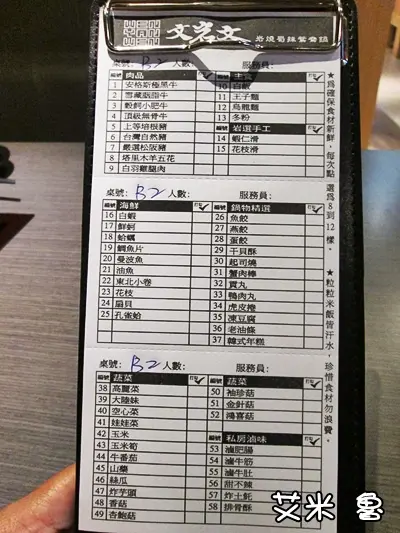 文岩文
岩燒蜀辣鴛鴦鍋
桌號: B2 人數: 服務員:
編號 肉品 打勾
1 安格斯極黑牛
2 雪藏胭脂牛
3 穀飼小肥牛
4 頂級無骨牛
5 上等培根豬
6 台灣自然豬
7 嚴選松阪豬
8 塔里木羊五花
9 白羽雞腿肉
10 白飯
11 王子麵
12 烏龍麵
13 冬粉
編號 岩選手工 打勾
14 蝦仁滑
15 花枝滑
桌號: B2 人數: 服務員:
編號 海鮮 打勾
16 白蝦
17 鮮蚵
18 蛤蠣
19 鯛魚片
20 曼波魚
21 油魚
22 東北小卷
23 花枝
24 扇貝
25 孔雀蛤
編號 鍋物精選 打勾
26 魚餃
27 燕餃
28 蛋餃
29 干貝酥
30 起司燒
31 蟹肉棒
32 貢丸
33 鴨肉丸
34 虎皮捲
35 凍豆腐
36 老油條
37 韓式年糕
桌號: B2 人數: 服務員:
編號 蔬菜 打勾
38 高麗菜
39 大陸妹
40 空心菜
41 娃娃菜
42 玉米
43 玉米筍
44 牛番茄
45 山藥
46 絲瓜
47 炸芋頭
48 香菇
49 杏鮑菇
編號 蔬菜 打勾
50 袖珍菇
51 金針菇
52 鴻喜菇
編號 私房滷味 打勾
53 滷肥腸
54 滷牛筋
55 滷牛肚
56 甜不辣
57 炸土魠
58 排骨酥
★為確保食材新鮮,每次點選為8到12樣。
★粒粒米飯皆汗水,珍惜食材勿浪費。
艾米 魯